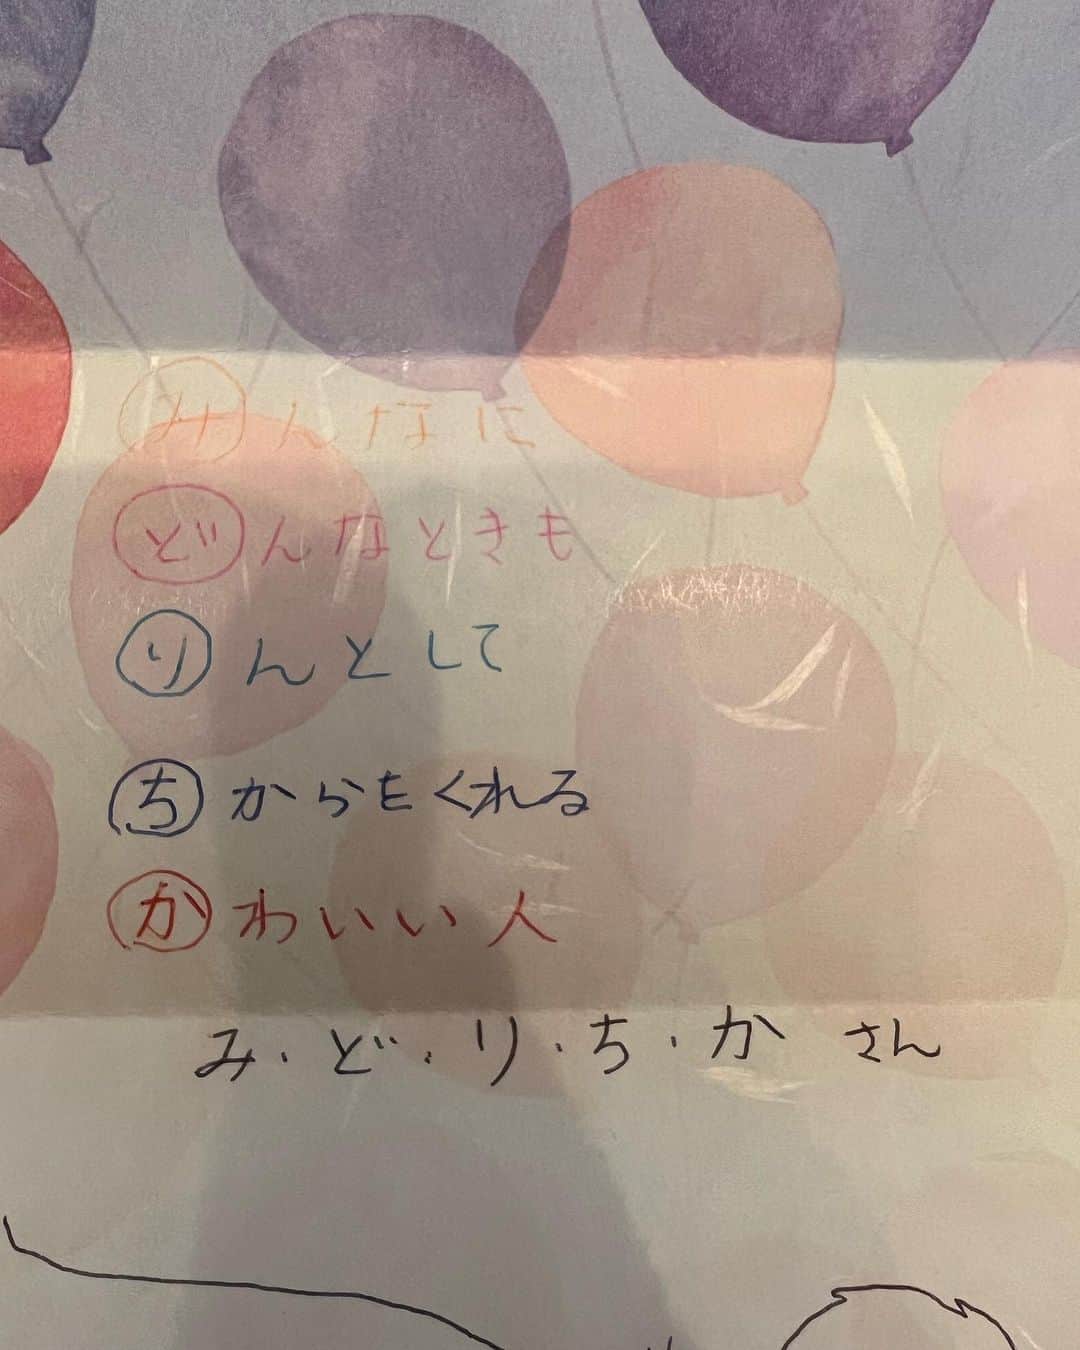 みんなに
どんなときも
りんとして
ちからをくれる
かわいい人
み・ど・り・ち・か さん